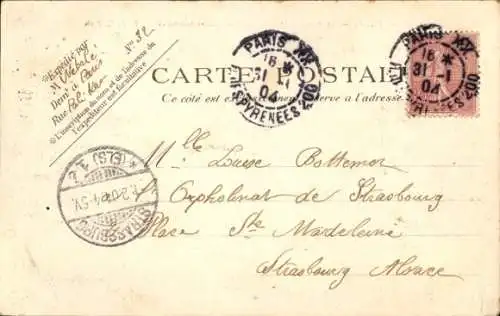 Expédié par
M Nebele N° 32
Demt à Paris
Rue
L'inscription du nom et de l'adresse de
l'expéditeur est facultative
CARTE POSTALE
Ce côté est exclusivement réservé à l'adresse
PARIS XX
16 *
31 -1
04
R. DES PYRENEES 200
PARIS XX
16 *
31 -1
04
PYRENEES 200
STRASSBURG
(ELS) 1.
1.2.04. 4-5V.
Mlle Louise Bottemer
Orphelinat de Strasbourg
Place Ste Madeleine
Strasbourg Alsace